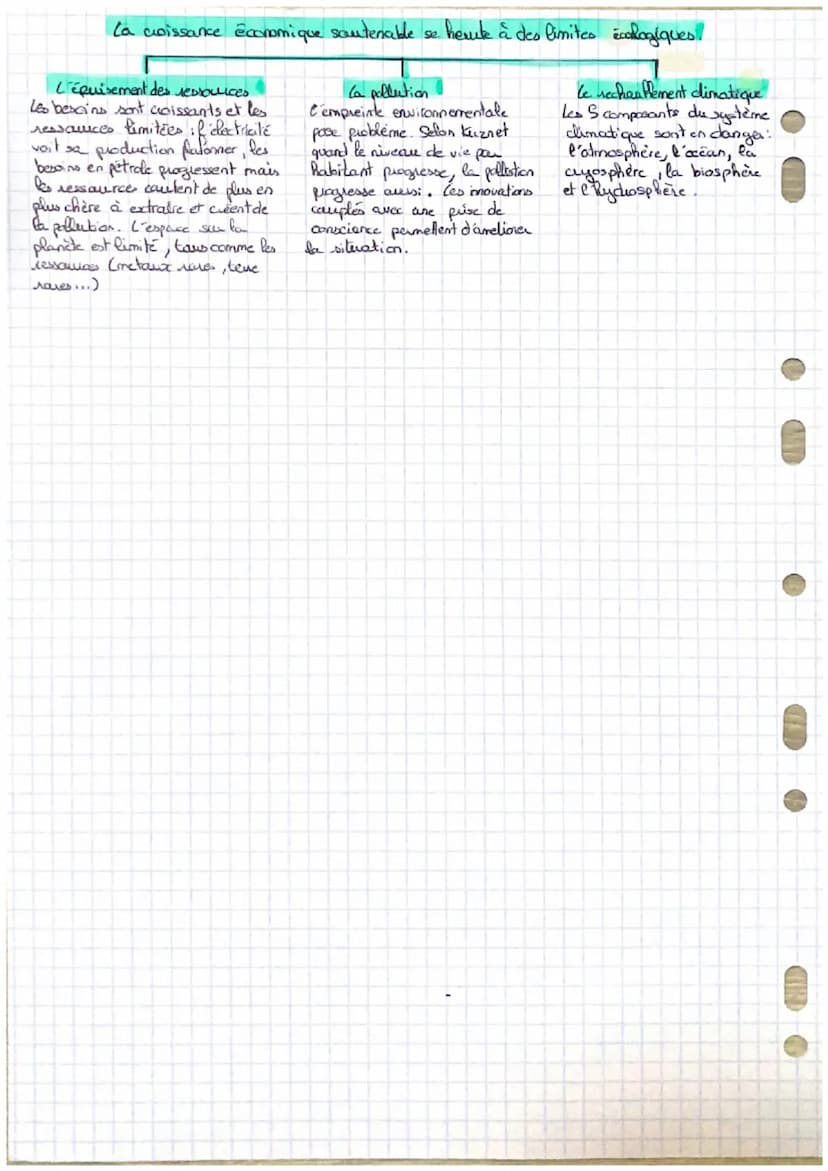 La croissance économique soutenable se heurte à des limites écologiques.
L'épuisement des ressources
Les besoins sont croissants et les
ressources limitées : l'électricité
voit sa production plafonner, les
besoins en pétrole progressent mais
les ressources coutent de plus en
plus chère à extraire et créent de
la pollution. L'espace sur la
planète est limité, tous comme les
ressources (metaux rares, terre
rares...)
La pollution
L'empreinte environnementale
pose problème. Selon Kuznet
quand le niveau de vie par
habitant progresse, la pollution
progresse aussi. Les innovations
couplés avec une prise de
conscience permettent d'améliorer
la situation.
Le rechauffement climatique
Les 5 composants du système
climatique sont en danger :
l'atmosphère, l'océan, la
cryosphère, la biosphère
et l'hydrosphère.